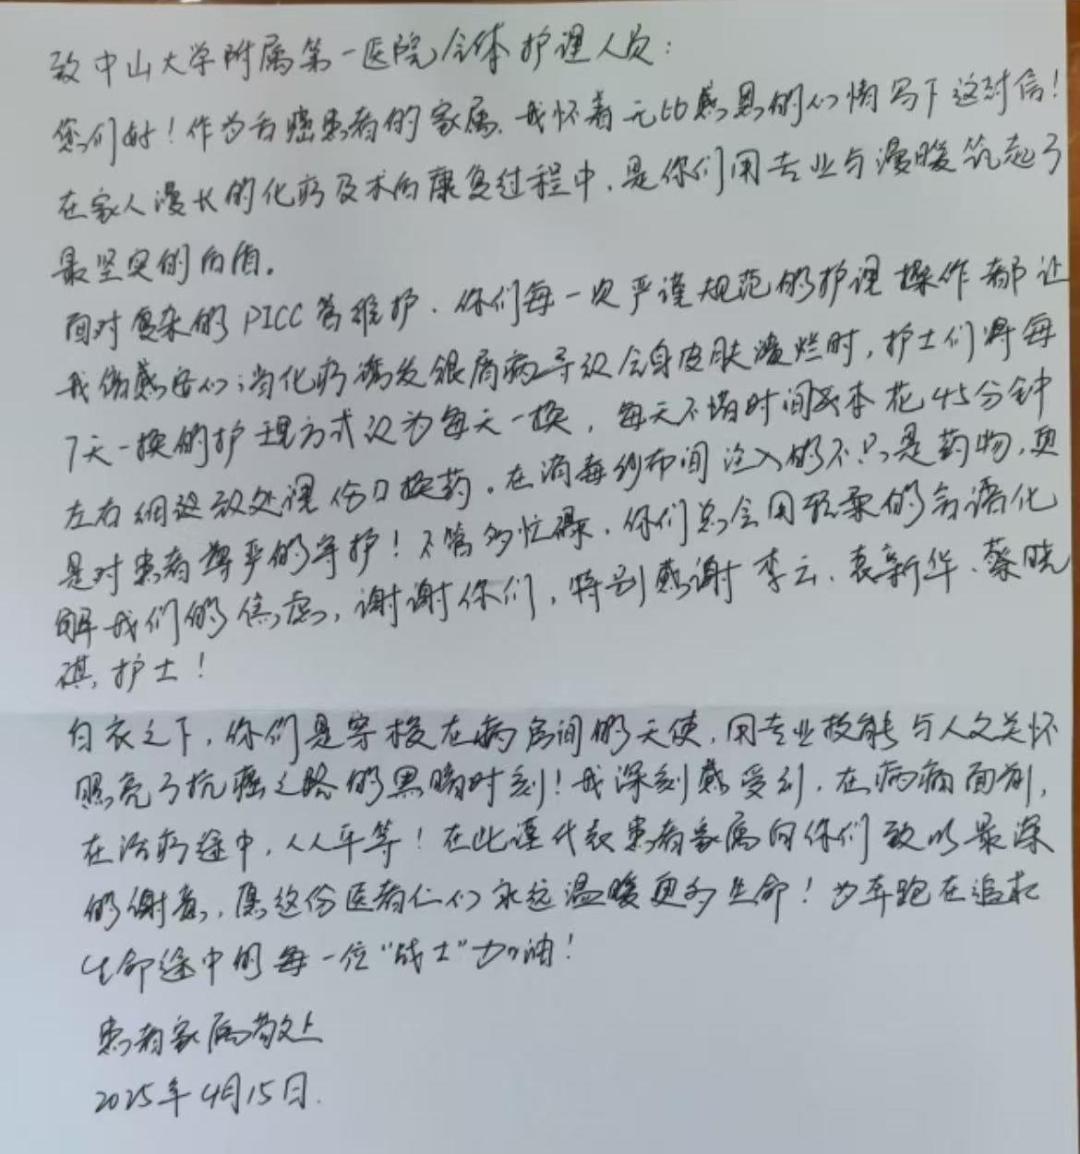 致中山大学附属第一医院全体护理人员:
您们好!作为舌癌患者的家属,我怀着无比感恩的心情写下这封信!
在家人漫长的化疗及术后康复过程中,是你们用专业与温暖筑起了
最坚实的后盾。
面对复杂的PICC管维护,你们每一次严谨规范的护理操作都让
我倍感安心;当化疗诱发银屑病导致全身皮肤溃烂时,护士们将每
7天一换的护理方式改为每天一换,每天不惜时间成本花45分钟
左右细致处理伤口换药。在消毒纱布间注入的不只是药物,更
是对患者尊严的守护!不管多忙碌,你们总会用轻柔的言语化
解我们的焦虑,谢谢你们,特别感谢李云、袁新华、蔡晓
祺,护士!
白衣之下,你们是穿梭在病房间的天使,用专业技能与人文关怀
照亮了抗癌之路的黑暗时刻!我深刻感受到,在病痛面前,
在治疗途中,人人平等!在此谨代表患者家属向你们致以最深
的谢意,愿这份医者仁心永远温暖更多生命!为奔跑在追求
生命途中的每一位"战士"加油!
患者家属敬上
2025年4月15日.